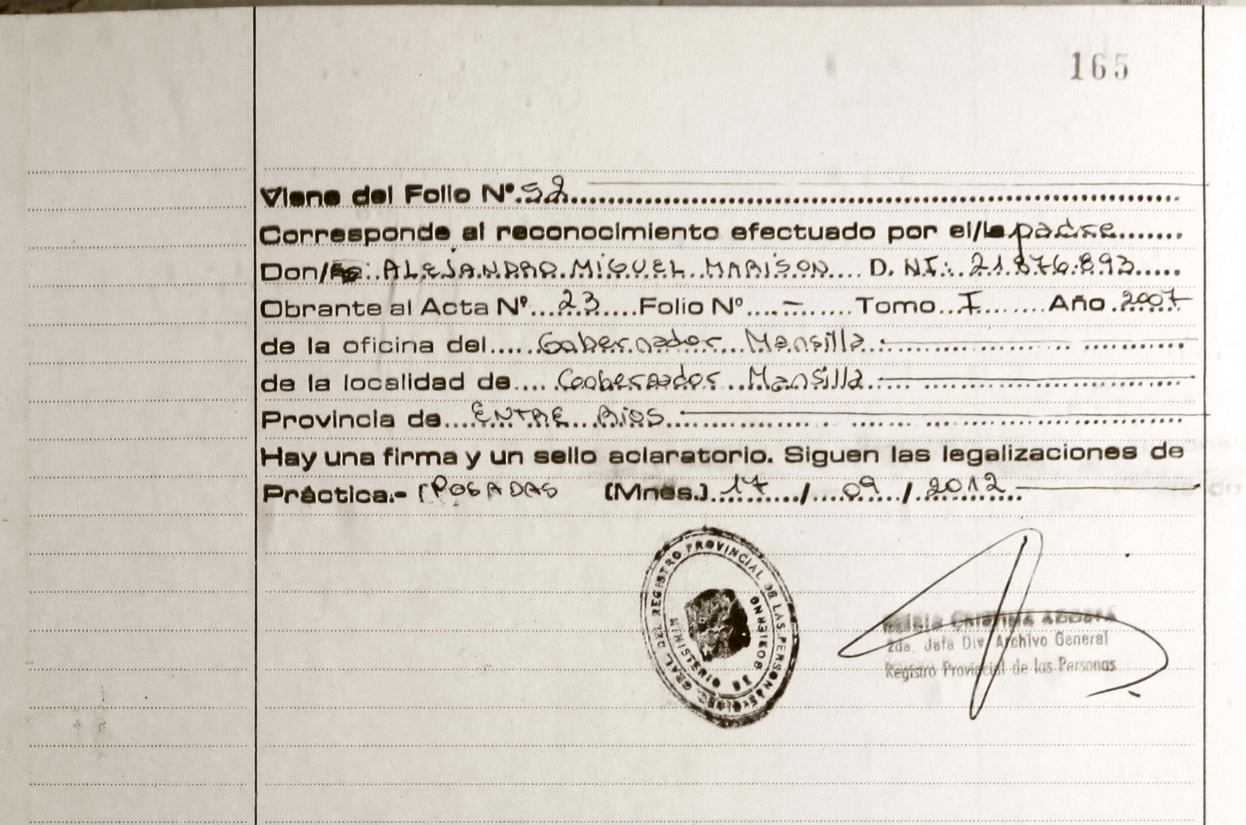 165
Viene del Folio Nº. 52
Corresponde al reconocimiento efectuado por el/la padre
Don/ : ALEJANDRO MIGUEL MARISON D. NI: 21.876.893
Obrante al Acta Nº 23 Folio Nº - Tomo I Año 2007
de la oficina del Gobernador Mansilla.-
de la localidad de Gobernador Mansilla.-
Provincia de ENTRE RIOS
Hay una firma y un sello aclaratorio. Siguen las legalizaciones de
Práctica.- POSADAS (Mnes.) 17 / 09 / 2012
GRAL. DEL REGISTRO PROVINCIAL DE LAS PERSONAS
MINISTERIO DE GOBIERNO
CRISTINA ACOSTA
2da. Jefa Div. Archivo General
Registro Provincial de las Personas